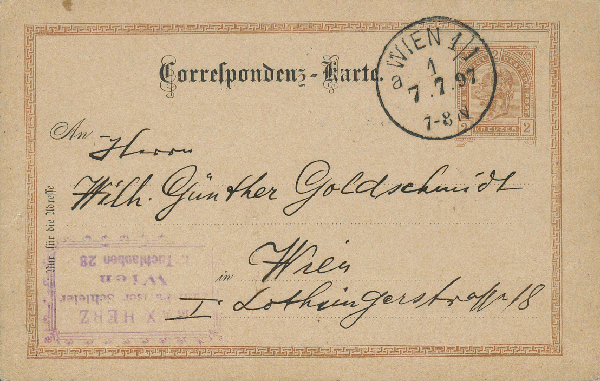 Correspondenz-Karte.
WIEN 1/1
a
1
7.7.97
7-8 N
2 KREUZER 2
An
Herrn
Wilh. Günther Goldschmidt
in Wien
I Lothringerstraße 18
Nur für die Adresse
HERZ
Schiefer
Wien
Tuchlauben 28